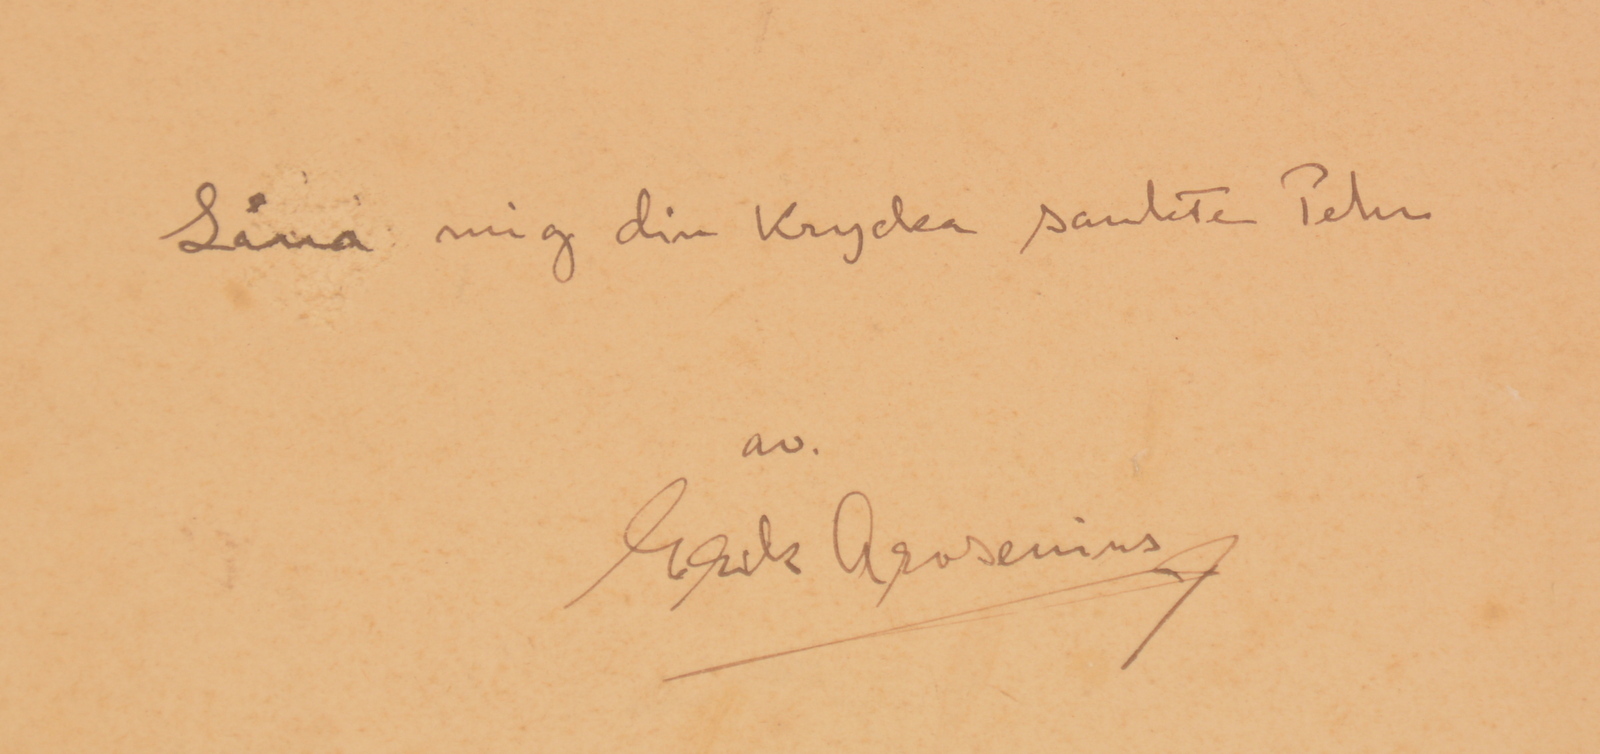 Låna mig din Krycka sankte Peter
av.
Erik Arosenius